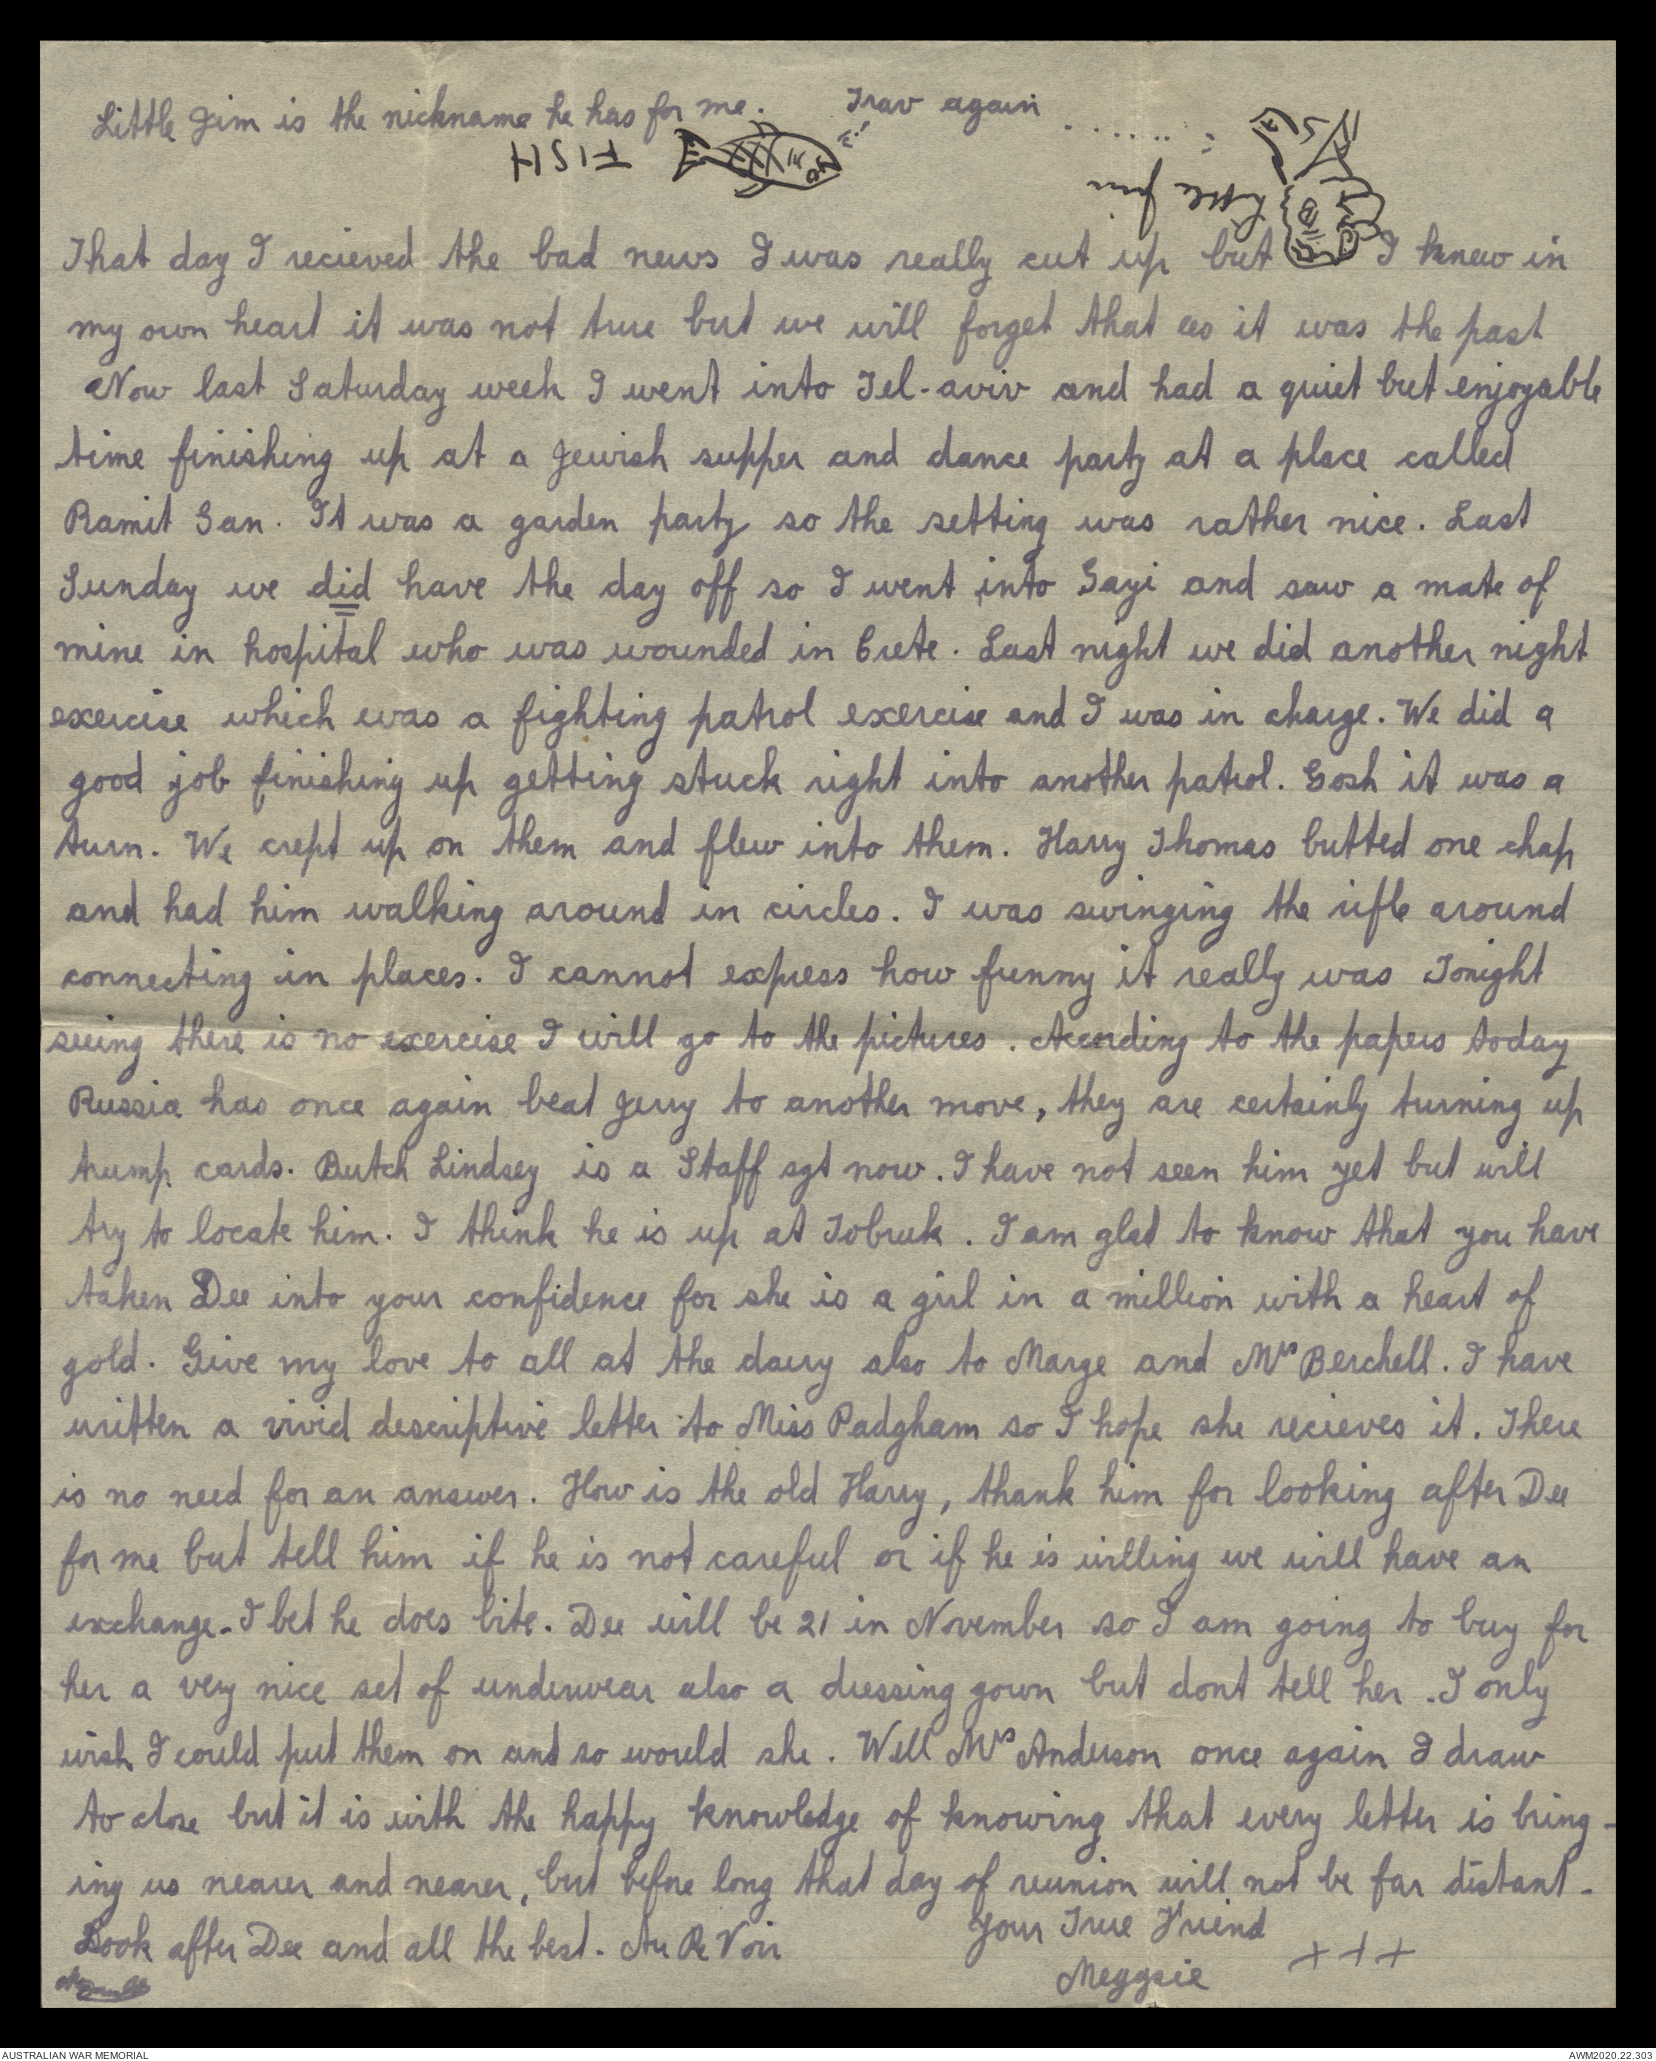 Little Jim is the nickname he has for me. Trav again
FISH
Little Jim
That day I recieved the bad news I was really cut up but I knew in
my own heart it was not true but we will forget that as it was the past
Now last Saturday week I went into Tel-aviv and had a quiet but enjoyable
time finishing up at a Jewish supper and dance party at a place called
Ramit Gan. It was a garden party so the setting was rather nice. Last
Sunday we did have the day off so I went into Gayi and saw a mate of
mine in hospital who was wounded in Crete. Last night we did another night
exercise which was a fighting patrol exercise and I was in charge. We did a
good job finishing up getting stuck right into another patrol. Gosh it was a
turn. We crept up on them and flew into them. Harry Thomas butted one chap
and had him walking around in circles. I was swinging the rifle around
connecting in places. I cannot express how funny it really was Tonight
seeing there is no exercise I will go to the pictures. According to the papers today
Russia has once again beat Jerry to another move, they are certainly turning up
trump cards. Butch Lindsey is a Staff sgt now. I have not seen him yet but will
try to locate him. I think he is up at Tobruk. I am glad to know that you have
taken Dee into your confidence for she is a girl in a million with a heart of
gold. Give my love to all at the dairy also to Marge and Mrs Berchell. I have
written a vivid descriptive letter to Miss Padgham so I hope she recieves it. There
is no need for an answer. How is the old Harry, thank him for looking after Dee
for me but tell him if he is not careful or if he is willing we will have an
exchange. I bet he does bite. Dee will be 21 in November so I am going to buy for
her a very nice set of underwear also a dressing gown but dont tell her. I only
wish I could put them on and so would she. Well Mrs Anderson once again I draw
to close but it is with the happy knowledge of knowing that every letter is bring-
ing us nearer and nearer, but before long that day of reunion will not be far distant.
Look after Dee and all the best. Au Re Voir
Your True Friend
Meggsie +++
AUSTRALIAN WAR MEMORIAL
AWM2020.22.303